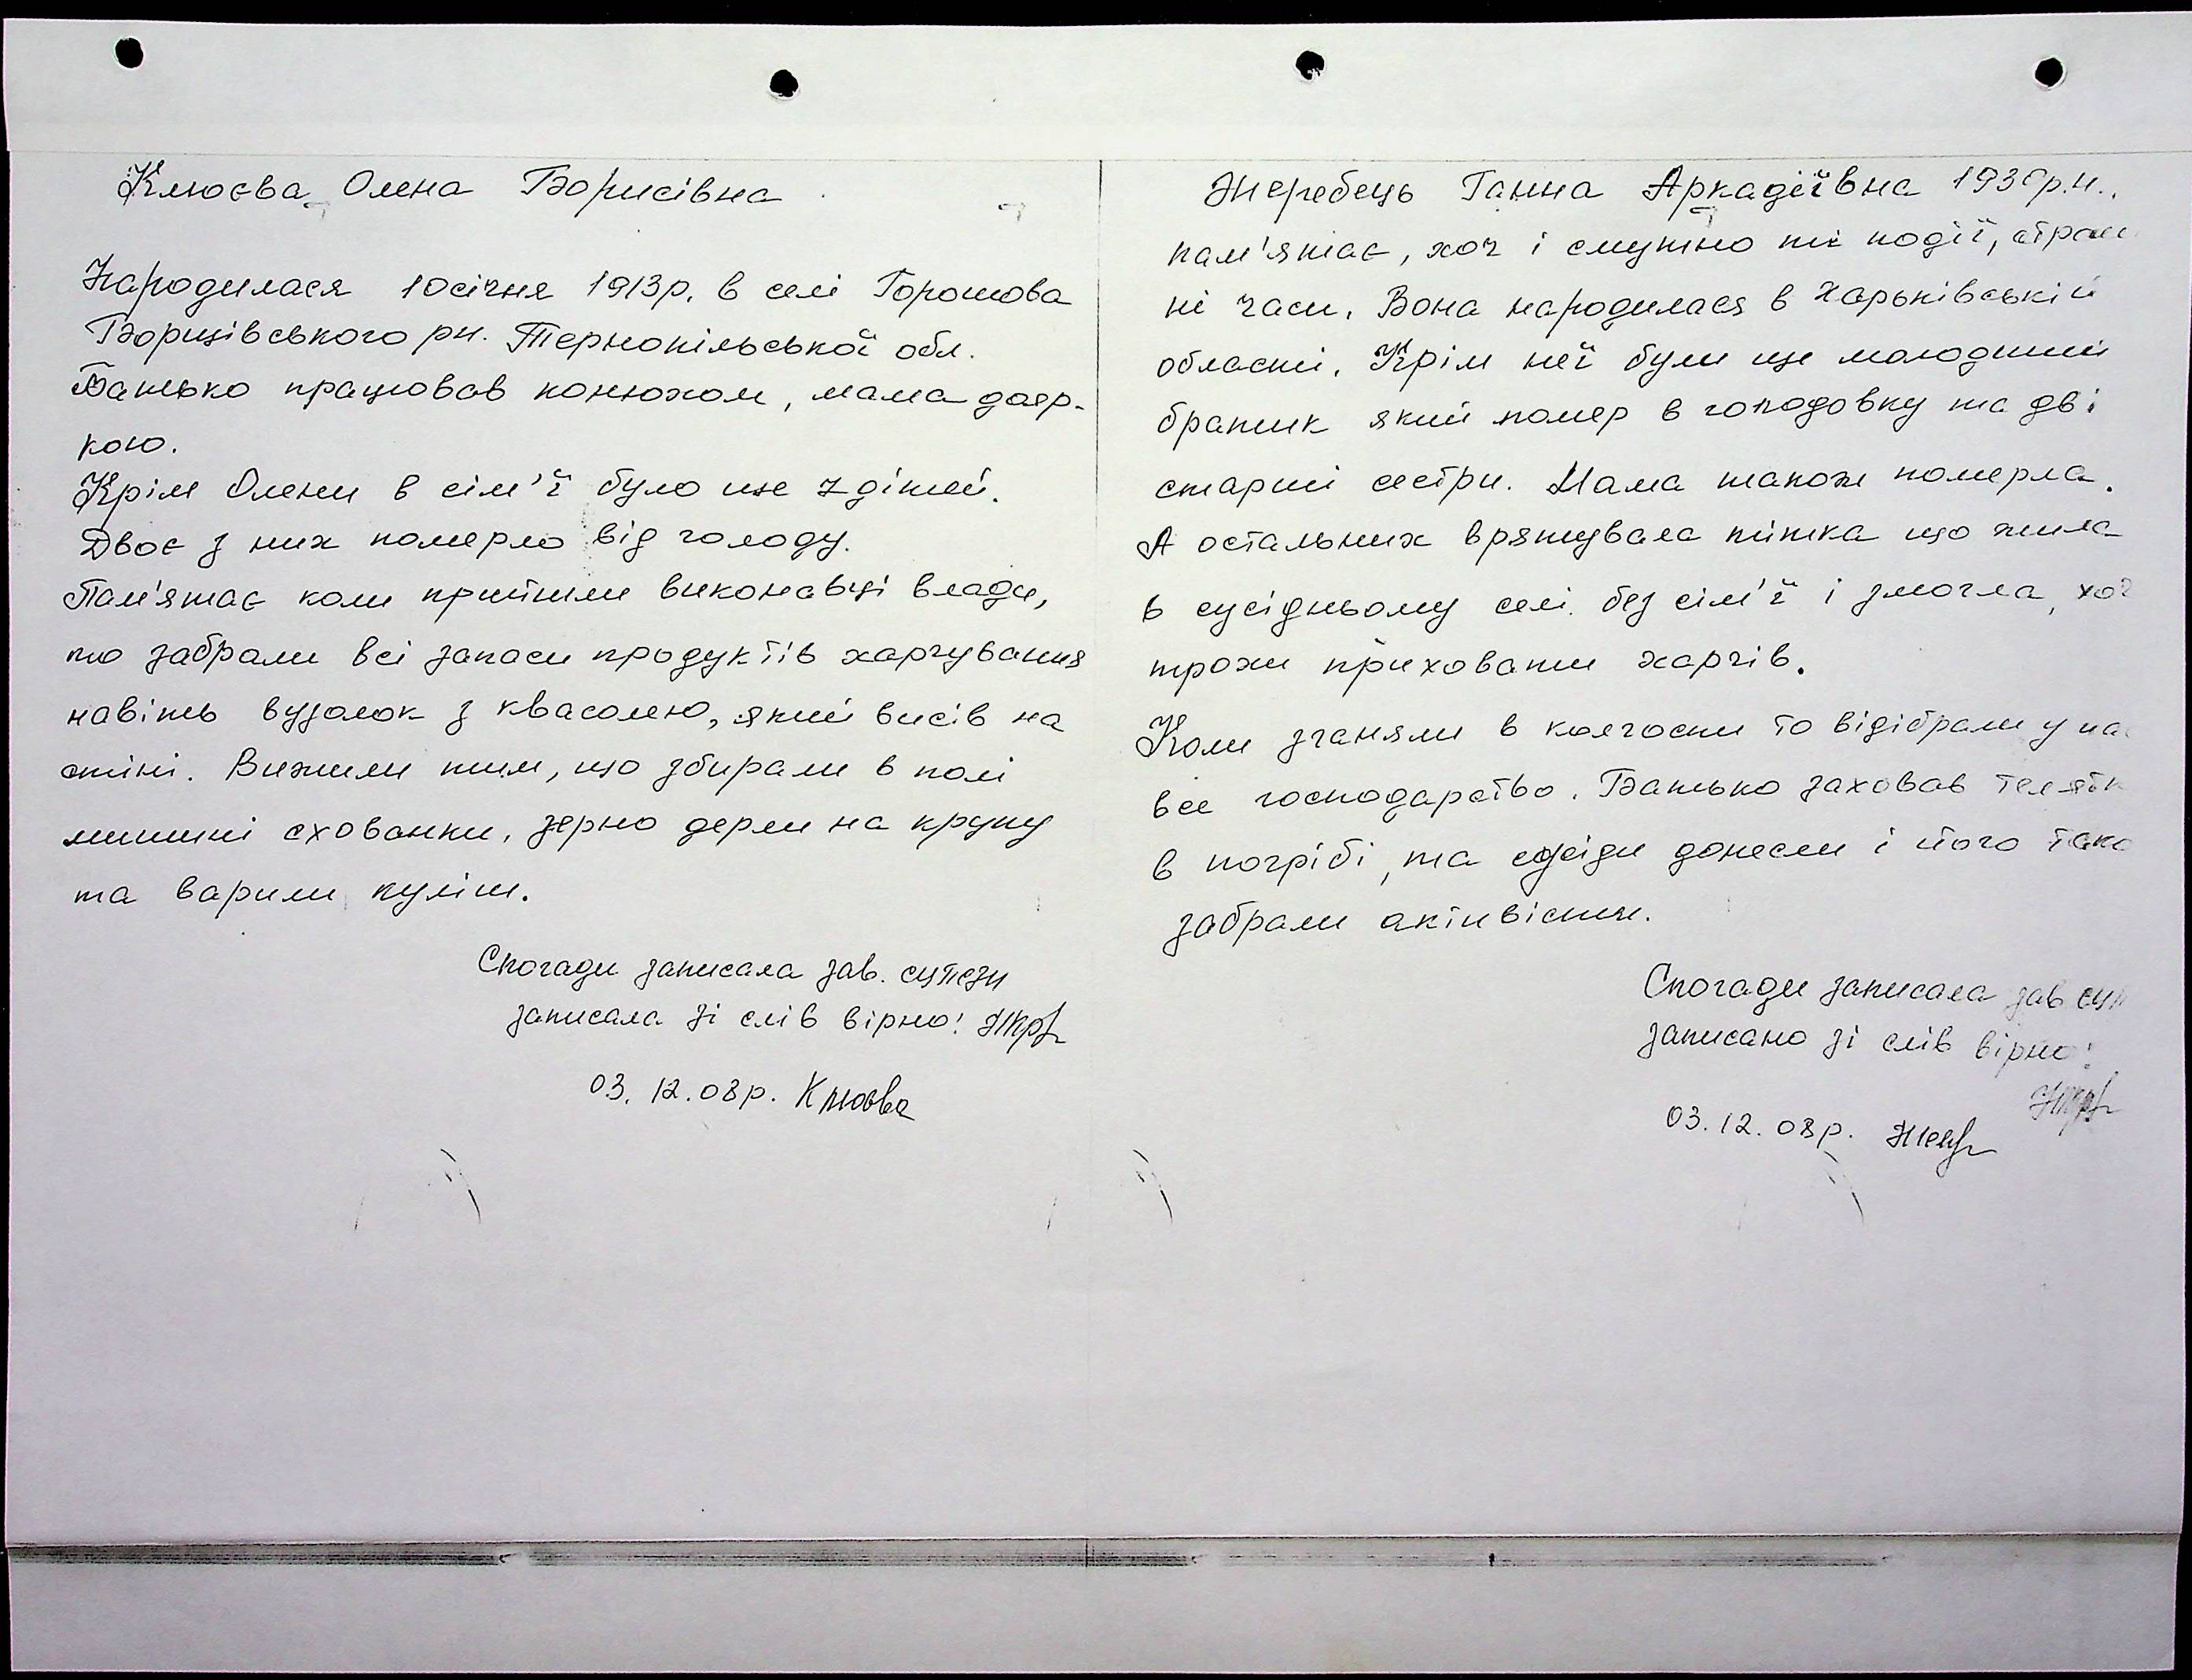 Клюєва Олена Борисівна
Народилася 10 січня 1913р. в селі Горошова
Борщівського рн. Тернопільської обл.
Батько працював конюхом, мама дояр-
кою.
Крім Олени в сім'ї було ще 7 дітей.
Двоє з них померло від голоду.
Пам'ятає коли прийшли виконавці влади,
то забрали всі запаси продуктів харчування
навіть вузолок з квасолею, який висів на
стіні. Вижили тим, що збирали в полі
мишині схованки, зерно дерли на крупу
та варили куліш.
Спогади записала зав.
записала зі слів вірно!
03.12.08р. Клюєва
Жеребець Ганна Аркадіївна р.н.
пам'ятає, хоч і смутно ті події, страш
ні часи. Вона народилася в Харьківській
області. Крім неї були ще молодший
братик який помер в голодовку та дві
старші сестри. Мама також померла.
А остальних врятувала тітка що жила
в сусідньому селі без сім'ї і змогла, хоч
трохи приховати харчів.
Коли зганяли в колгоспи то відібрали у на
все господарство. Батько заховав телятк
в погрібі, та сусіди донесли і його тако
забрали активісти.
Спогади записала зав
записано зі слів вірно!
03.12.08р.